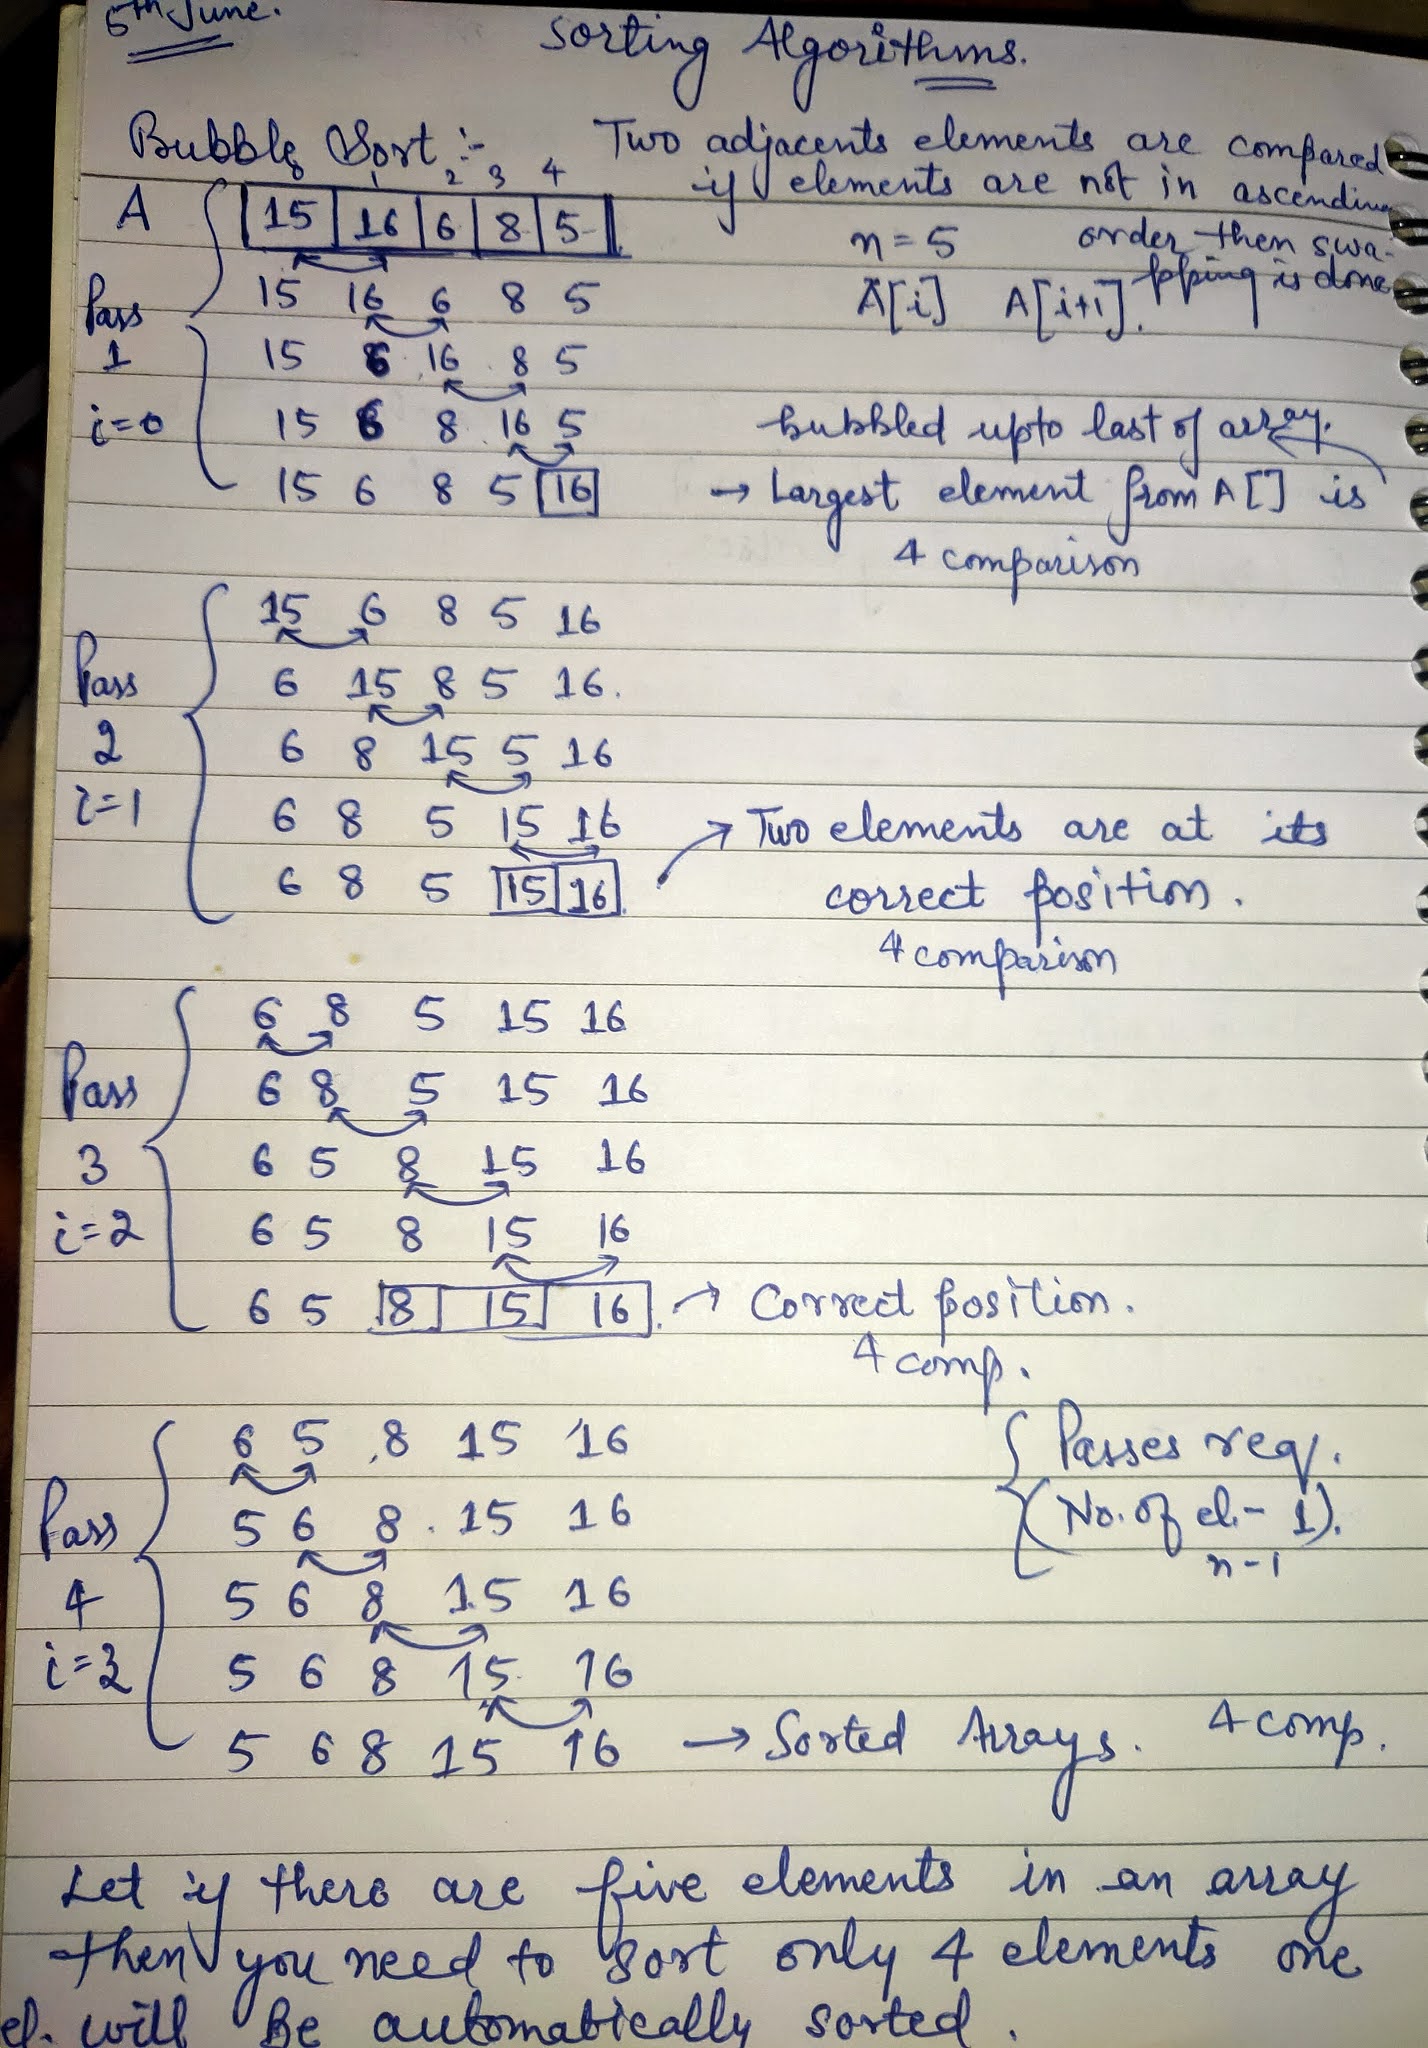 5th June.
Sorting Algorithms.
Bubble Sort :- Two adjacents elements are compared
0 1 2 3 4
if elements are not in ascending
A 15 16 6 8 5
n = 5 order then swa-
pping is done
Pass 15 16 6 8 5 A[i] A[i+1].
1 15 6 16 8 5
i=0 15 6 8 16 5 bubbled upto last of array.
15 6 8 5 16 → Largest element from A[] is
4 comparison
15 6 8 5 16
Pass 6 15 8 5 16.
2 6 8 15 5 16
i=1 6 8 5 15 16 → Two elements are at its
6 8 5 15 16 correct position.
4 comparison
6 8 5 15 16
Pass 6 8 5 15 16
3 6 5 8 15 16
i=2 6 5 8 15 16
6 5 8 15 16 → Correct position.
4 comp.
6 5 8 15 16 Passes req.
Pass 5 6 8 15 16 (No. of el. - 1).
n-1
4 5 6 8 15 16
i=3 5 6 8 15 16
5 6 8 15 16 → Sorted Arrays. 4 comp.
Let if there are five elements in an array
then you need to sort only 4 elements one
el. will be automatically sorted.